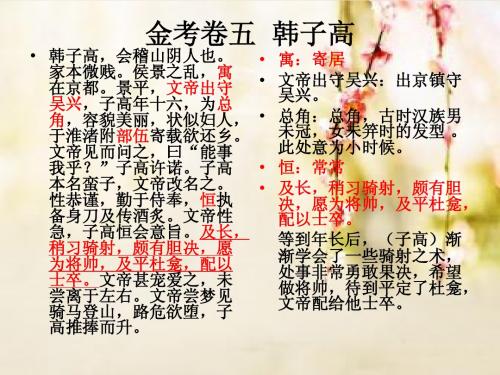 金考卷五 韩子高
• 韩子高，会稽山阴人也。
家本微贱。侯景之乱，寓
在京都。景平，文帝出守
吴兴，子高年十六，为总
角，容貌美丽，状似妇人，
于淮渚附部伍寄载欲还乡。
文帝见而问之，曰“能事
我乎？”子高许诺。子高
本名蛮子，文帝改名之。
性恭谨，勤于侍奉，恒执
备身刀及传酒炙。文帝性
急，子高恒会意旨。及长，
稍习骑射，颇有胆决，愿
为将帅，及平杜龛，配以
士卒。文帝甚宠爱之，未
尝离于左右。文帝尝梦见
骑马登山，路危欲堕，子
高推捧而升。
• 寓：寄居
• 文帝出守吴兴：出京镇守
吴兴。
• 总角：总角，古时汉族男
未冠，女未笄时的发型 。
此处意为小时候。
• 恒：常常
• 及长，稍习骑射，颇有胆
决，愿为将帅，及平杜龛，
配以士卒。
等到年长后，（子高）渐
渐学会了一些骑射之术，
处事非常勇敢果决，希望
做将帅，待到平定了杜龛，
文帝配给他士卒。